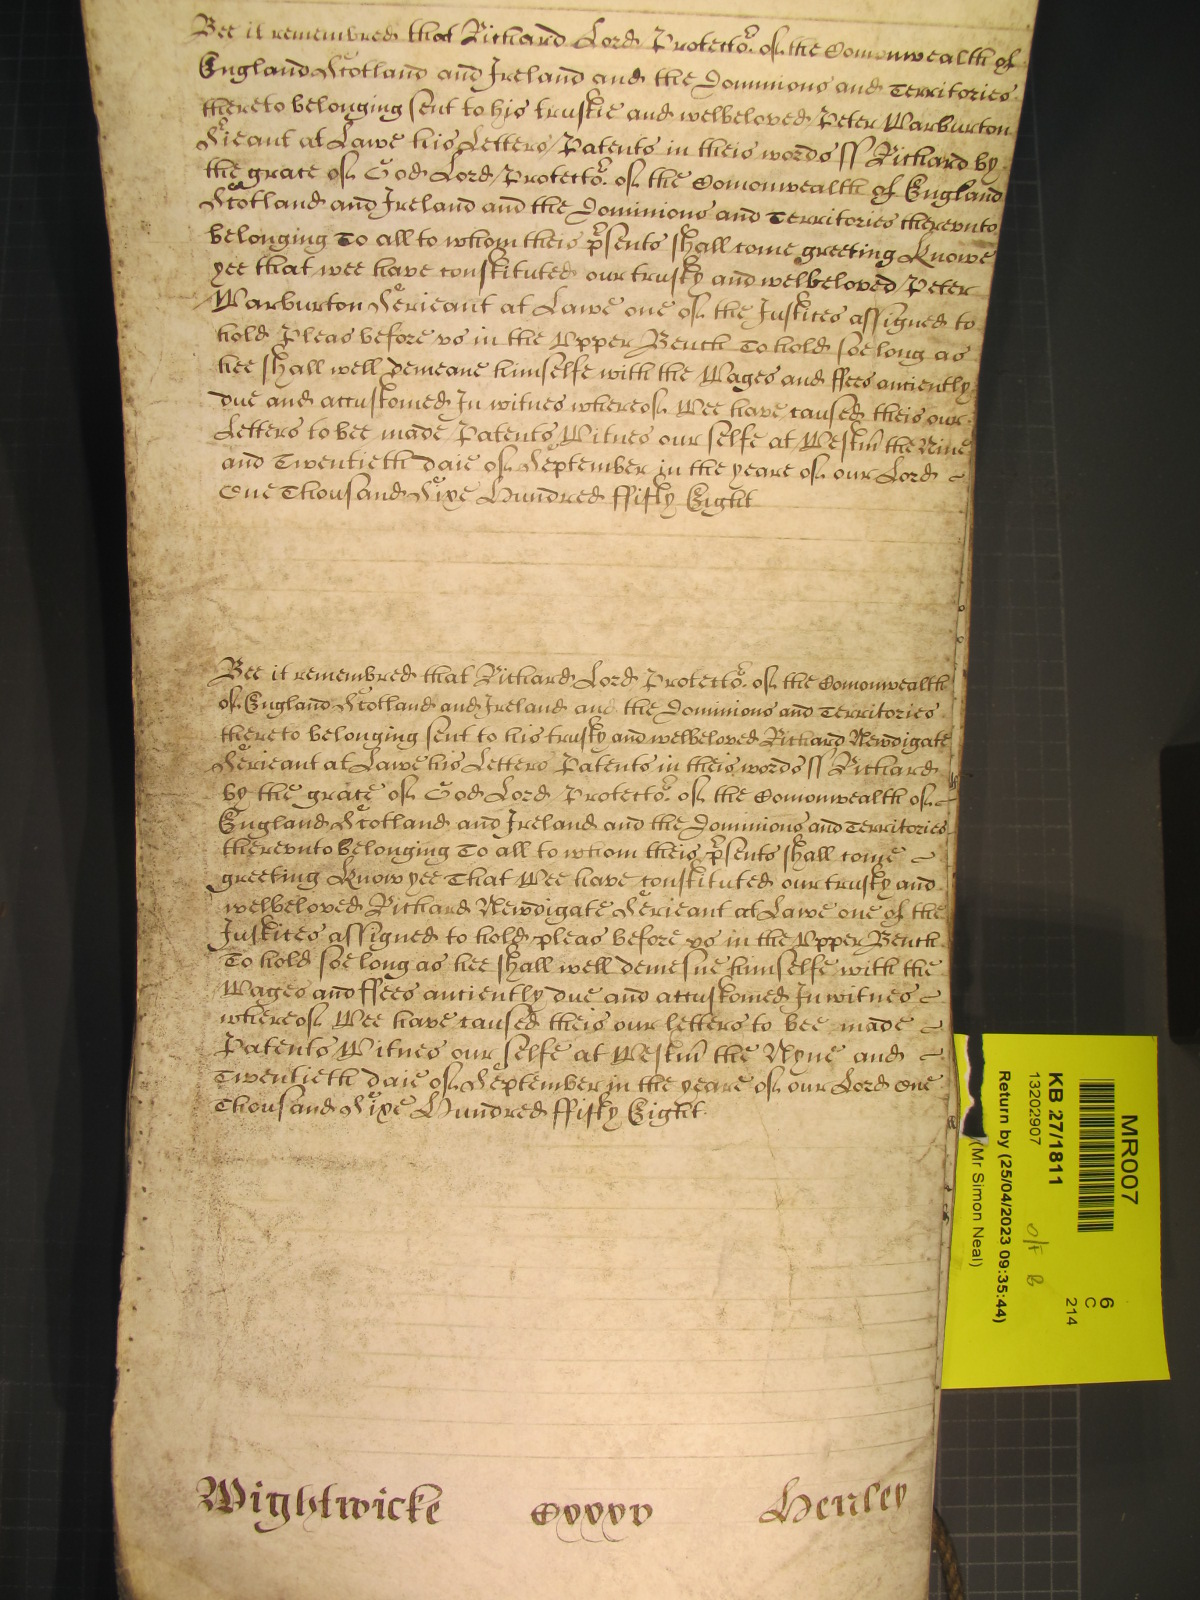 Bee it remembred that Richard Lord Protector of the Comonwealth of
England Scotland and Ireland and the Dominions and Territories
thereto belonging sent to his trustie and welbeloved Peter Warburton
Sʳieant at Lawe his Letters Patents in theis words ss Richard by
the grace of God Lord Protector of the Comonwealth of England
Scotland and Ireland and the Dominions and Territories therevnto
belonging To all to whom theis pʳsents shall come greeting Knowe
yee that wee have constituted our trusty and welbeloved Peter
Warburton Serieant at Lawe one of the Justices assigned to
hold Pleas before vs in the Vpper Bench To hold soe long as
hee shall well demeane himselfe with the Wages and ffees anciently
due and accustomed In witnes whereof Wee have caused theis our
Letters to bee made Patents Witnes our selfe at Westm̃ the Nine
and Twentieth daie of September in the yeare of our Lord
One Thousand Sixe Hundred ffifty Eight
Bee it remembred that Richard Lord Protector of the Comonwealth
of England Scotland and Ireland and the Dominions and Territories
thereto belonging sent to his trusty and welbeloved Richard Newdigate
Serieant at Lawe his Letters Patents in theis words ss Richard
by the grace of God Lord Protector of the Comonwealth of
England Scotland and Ireland and the Dominions and Territories
therevnto belonging To all to whom theis pʳsents shall come
greeting Know yee That Wee have constituted our trusty and
welbeloved Richard Newdigate Serieant at Lawe one of the
Justices assigned to hold pleas before vs in the Vpper Bench
To hold soe long as hee shall well demesne himselfe with the
Wages and ffees anciently due and accustomed In witnes
whereof Wee have caused theis our letters to bee made
Patents Witnes our selfe at Westm̃ the Nyne and
Twentieth daie of September in the yeare of our Lord One
Thousand Sixe Hundred ffifty Eight
Wightwicke Henley
MR007
6
C
214
KB 27/1811
13202907
O/F B
Return by (25/04/2023 09:35:44)
(Mr Simon Neal)